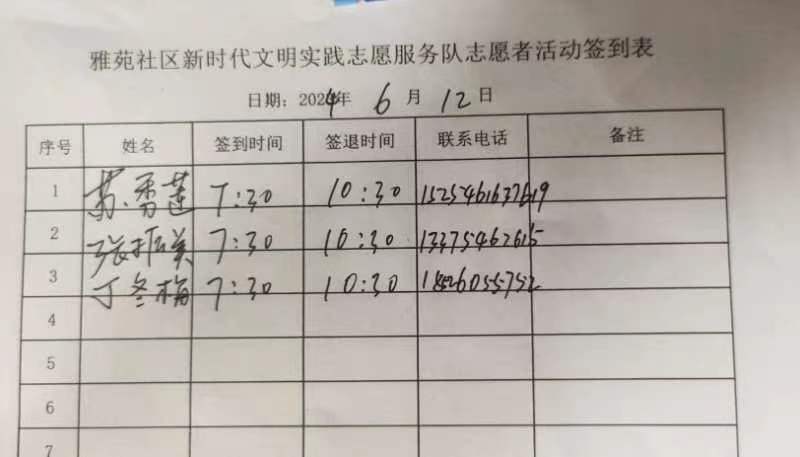 雅苑社区新时代文明实践志愿服务队志愿者活动签到表
日期：2024年 6 月 12 日
序号 姓名 签到时间 签退时间 联系电话 备注
1 苏秀莲 7:30 10:30
2 张振美 7:30 10:30 13375462615
3 丁冬梅 7:30 10:30
4
5
6
7